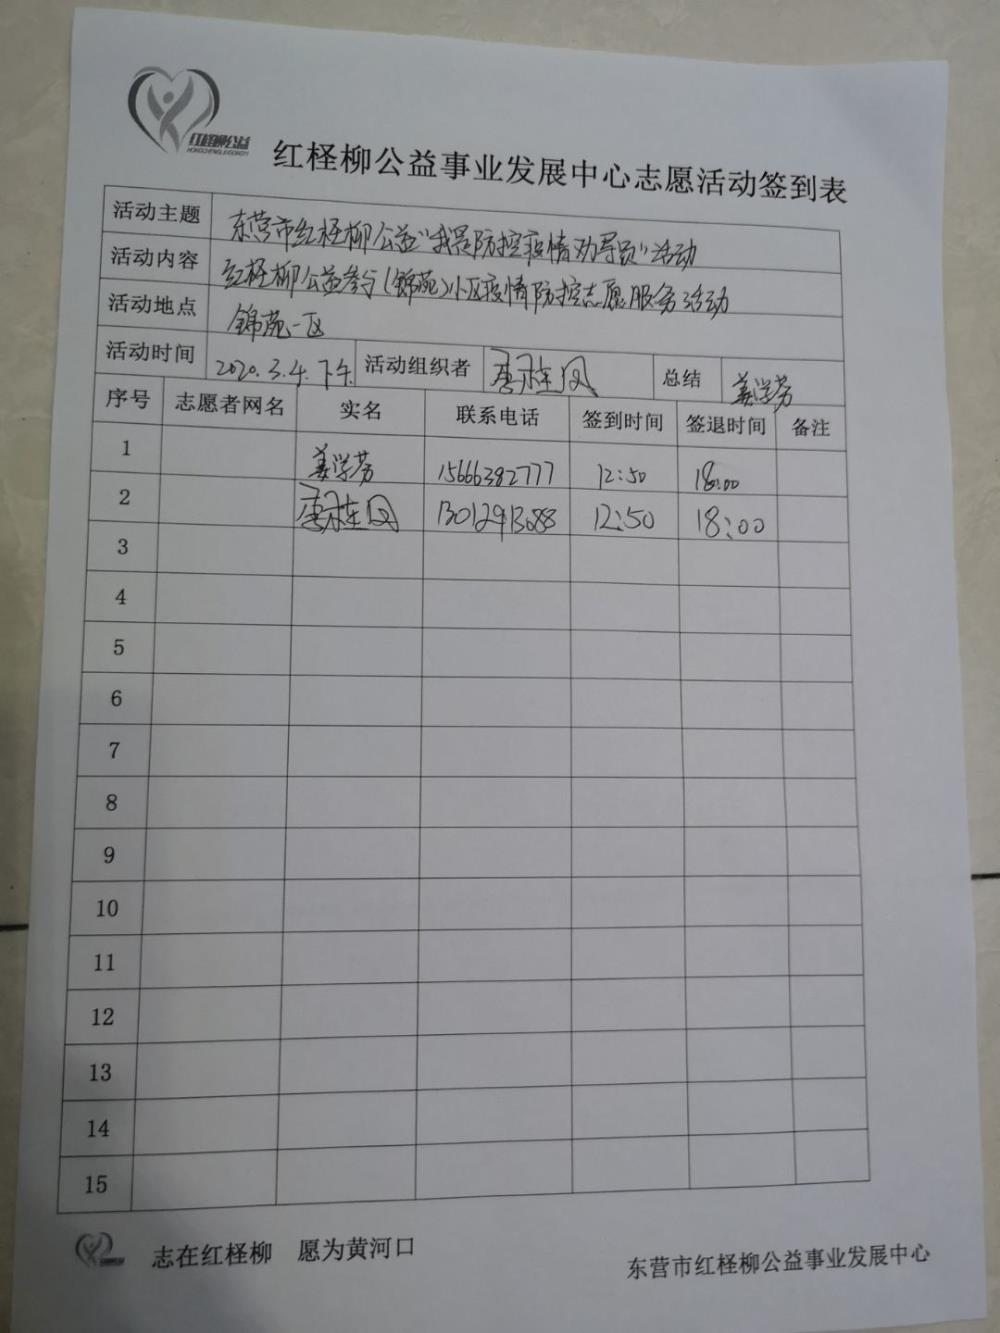 红柽柳公益
红柽柳公益事业发展中心志愿活动签到表
活动主题 东营市红柽柳公益"我是防控疫情劝导员"活动
活动内容 红柽柳公益参与(锦苑)小区疫情防控志愿服务活动
活动地点 锦苑一区
活动时间 2020.3.4.下午. 活动组织者 总结 姜学芳
序号 志愿者网名 实名 联系电话 签到时间 签退时间 备注
1 姜学芳 15666382777 12:50 18:00
2 13012913088 12:50 18:00
3
4
5
6
7
8
9
10
11
12
13
14
15
志在红柽柳 愿为黄河口
东营市红柽柳公益事业发展中心